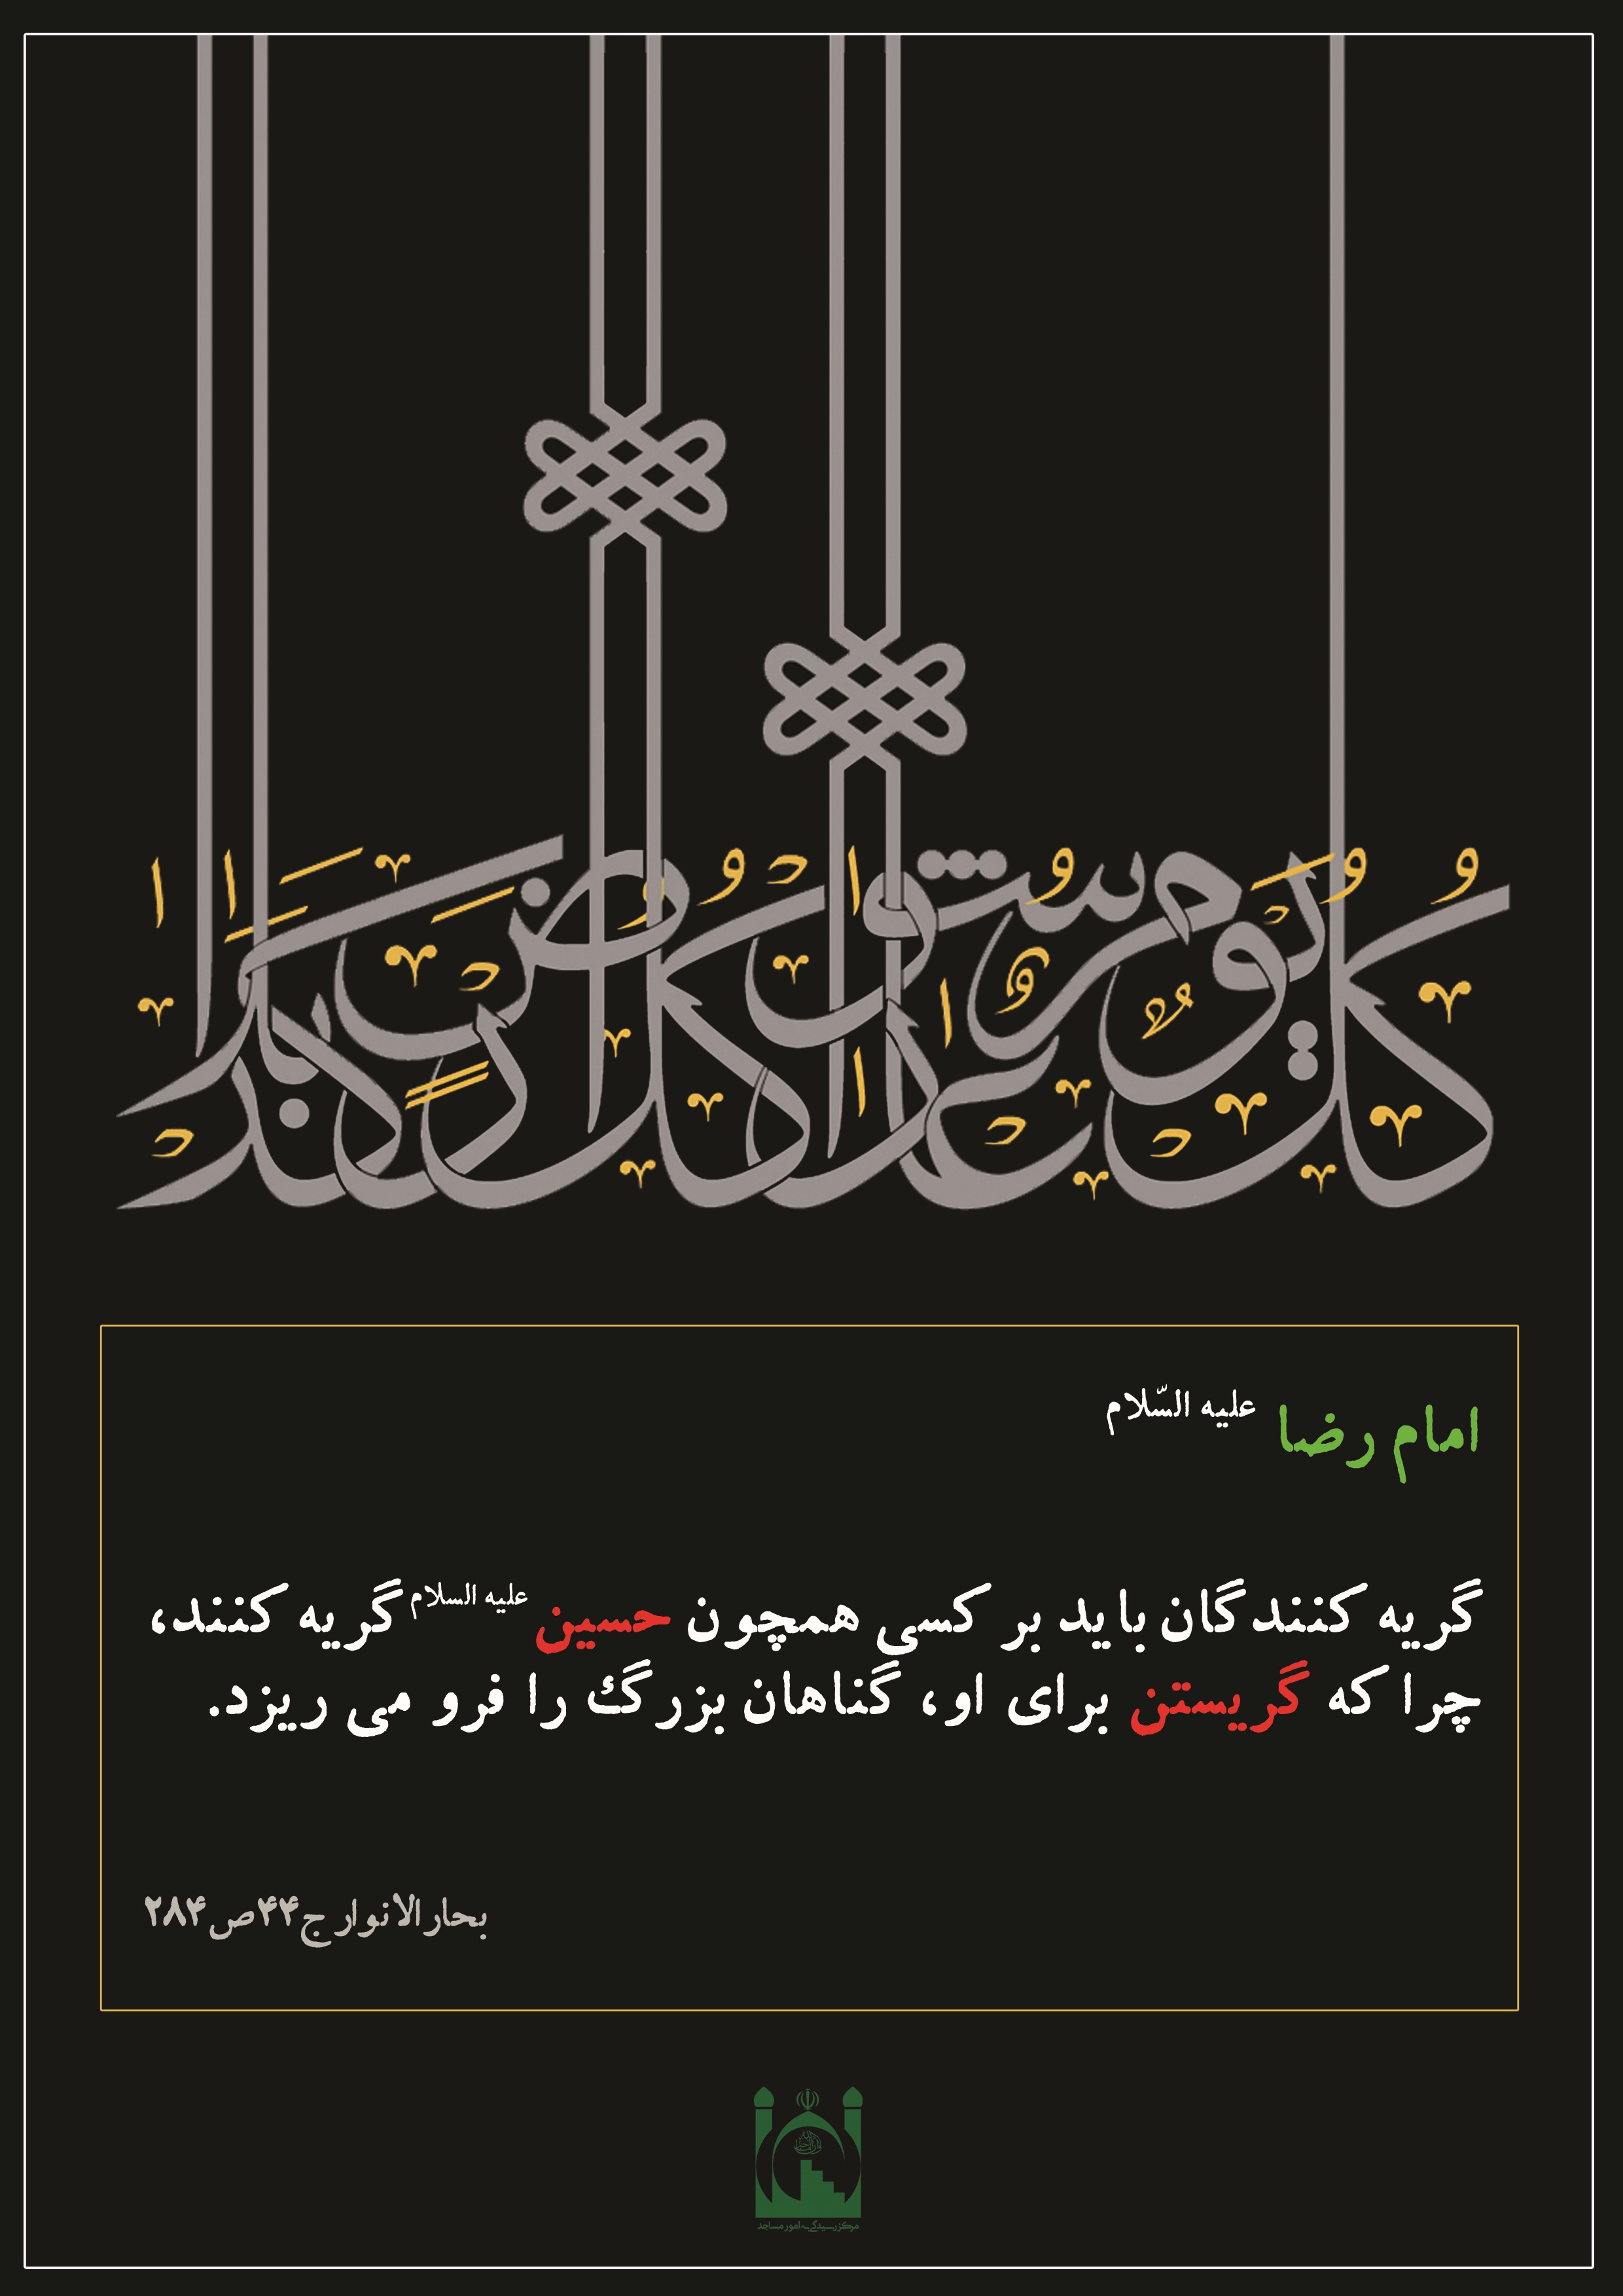 کل یوم عاشورا و کل ارض کربلا
امام رضا علیه السّلام
گریه کنندگان باید بر کسی همچون حسین علیه السلام گریه کنند،
چرا که گریستن برای او، گناهان بزرگ را فرو می ریزد.
بحارالانوار ج۴۴ص۲۸۴
مرکز رسیدگی به امور مساجد